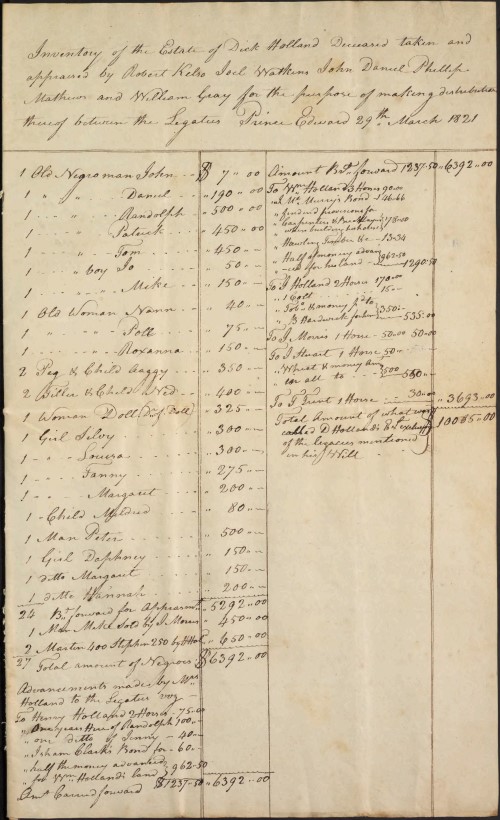 Inventory of the Estate of Dick Holland Deceased taken and
appraised by Robert Kelso Joel Watkins John Daniel Phillip
Mathews and William Gray for the purpose of making distribution
thereof between the Legatees Prince Edward 29th March 1821
1 Old Negroman John $ 7 " 00
1 " " " Daniel " 190 " 00
1 " Randolph " 500 " 00
1 " Patrick " 450 " 00
1 " Tom " 450 "
1 " boy Jo " 50 "
1 " Mike " 150 "
1 Old Woman Nann " 40 "
1 " " " Poll " 75 "
1 " Roxanna " 150 "
2 Peg & Child Aaggy " 350 "
2 & Child Ned " 400
1 Woman Doll " 325
1 Girl Silvy " 300
1 " Louisa " 300
1 " Fanny " 275
1 " Margaret " 200
1 Child Mildred " 80
1 Man Peter " 500
1 Girl Daphney " 150
1 ditto Margaret " 150
1 ditto Hannah " 200
24 Bt forward for " 5292 " 00
1 Man Mike Sold by J Morris " 450 " 00
2 Martin 400 Stephen 250 by " 650 " 00
27 Total amount of Negroes $ 6392 " 00
Advancements made by Mrs
Holland to the Legatees
To Henry Holland 2 Horses 75.00
" One years Hire of Randolph 100
" one ditto of Jenny 40
" Isham Clarks Bond for 60
" half the money advanced
" for Wm Hollands land 962-50
Amt Carried forward $1237-50 " 6392 " 00
Amount Bt forward 1237-50 " 6392 " 00
To Wm Holland 3 Horses 90.00
Murrys Bond 46.66
"
" Carpenters & 178-00
" when building his house
" Hawling Timber &c 13-34
" Half of money advan
" ced for his land 962-50 1290-50
To J Holland 2 Horses 170
" 1 Colt 15
" & money pd to
" 350 535-00
To J Morris 1 Horse 50-00 50-00
To J Stuart 1 Horse 50
" Wheat & money
all to 500 550
To 1 Horse 30 " 3693-00
Total Amount of what
called D Hollands
of the legacies mentioned
in his Will 10085-00